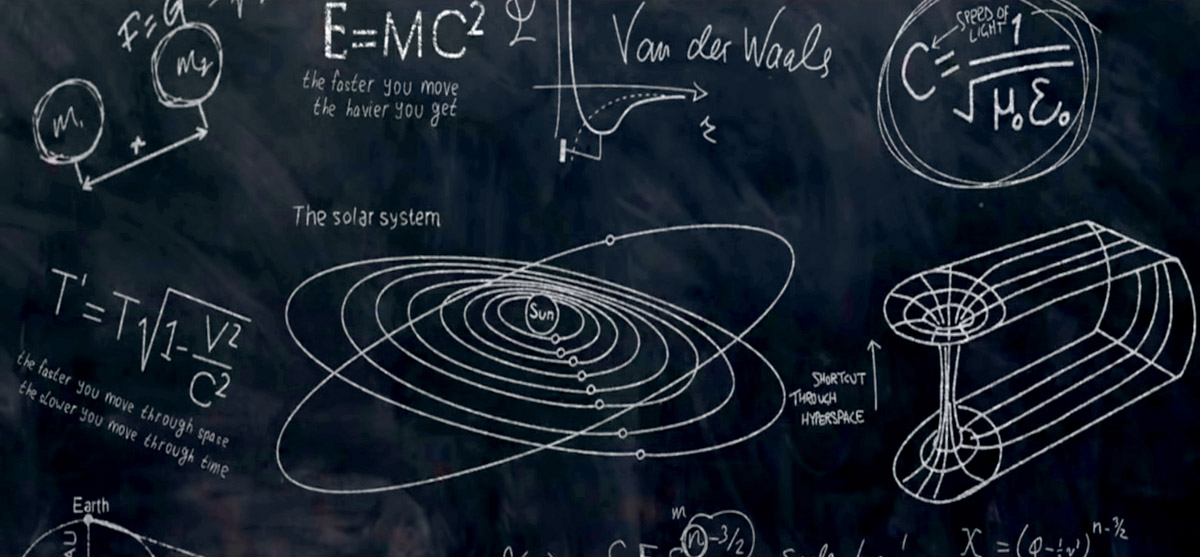 F=G
m₁
m₂
x
E=MC²
the faster you move
the havier you get
Van der Waals
SPEED OF
LIGHT
C=1/√μ₀ε₀
The solar system
Sun
T'=T√1-V²/C²
the faster you move through space
the slower you move through time
SHORTCUT
THROUGH
HYPERSPACE
Earth
AU
m
n-3/2
n-3/2
X=